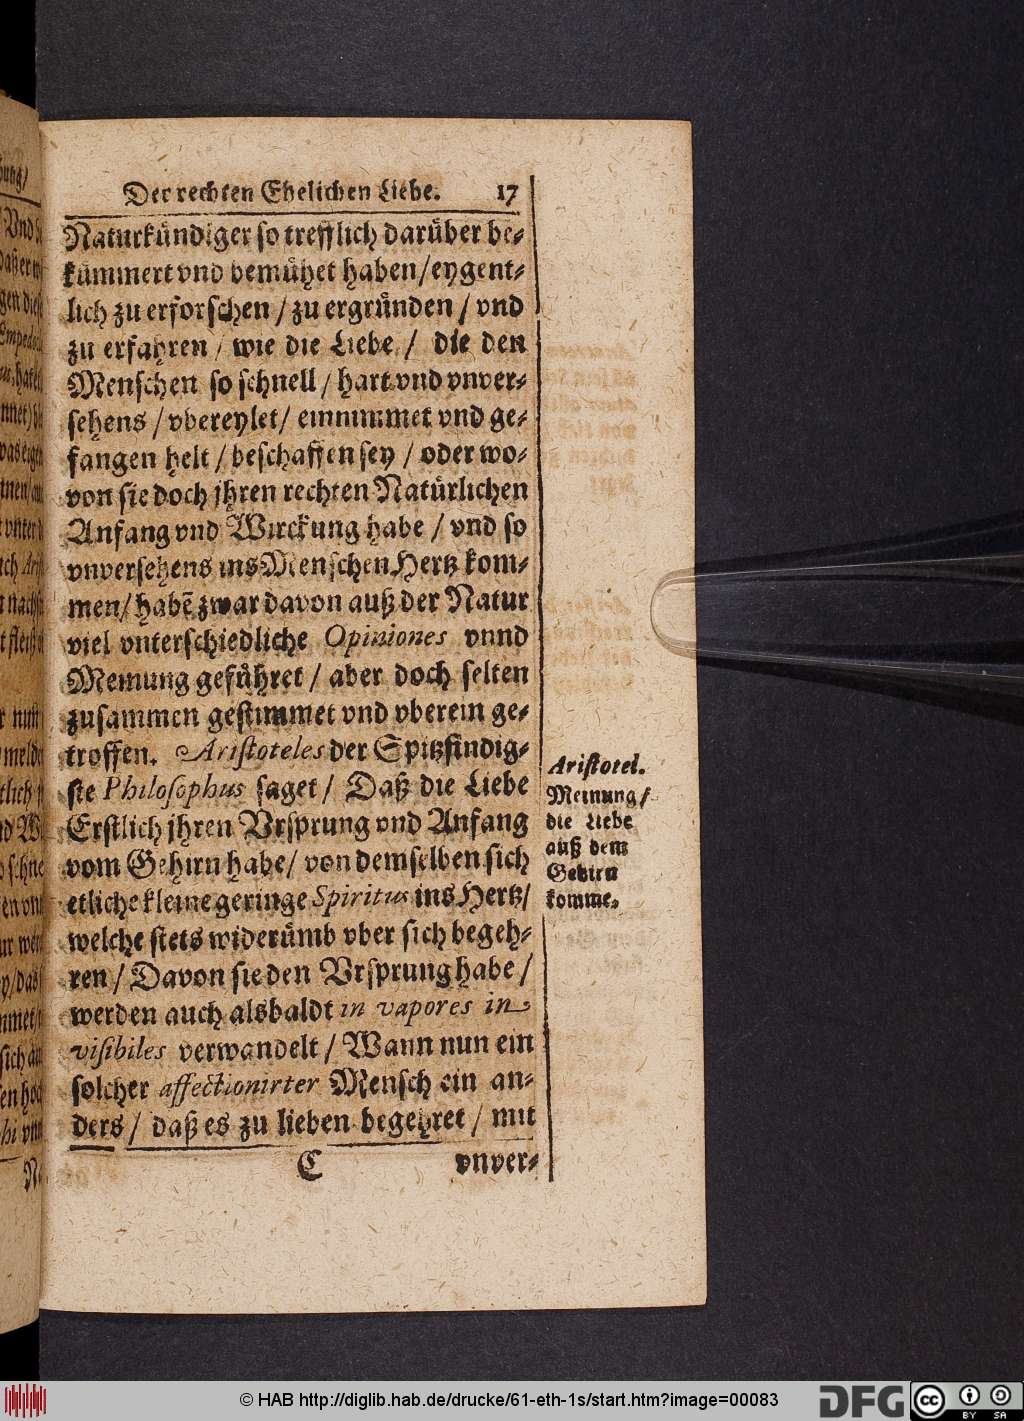 Der rechten Ehelichen Liebe. 17
Naturkündiger so trefflich darüber be-
kümmert vnd bemühet haben/eygent-
lich zu erforschen / zu ergründen / vnd
zu erfahren / wie die Liebe / die den
Menschen so schnell / hart vnd vnver-
sehens / vbereylet/ einnimmet vnd ge-
fangen helt / beschaffen sey / oder wo-
von sie doch jhren rechten Natürlichen
Anfang vnd Wirckung habe / vnd so
vnversehens ins Menschen Hertz kom-
men/ habẽ zwar davon auß der Natur
viel vnterschiedliche Opiniones vnnd
Meinung geführet / aber doch selten
zusammen gestimmet vnd vberein ge-
troffen. Aristoteles der Spitzfindig-
ste Philosophus saget / Daß die Liebe
Erstlich jhren Vrsprung vnd Anfang
vom Gehirn habe/ von demselben sich
etliche kleine geringe Spiritus ins Hertz/
welche stets widerümb vber sich begeh-
ren / Davon sie den Vrsprung habe /
werden auch alsbaldt in vapores in
visibiles verwandelt / Wann nun ein
solcher affectionirter Mensch ein an-
ders / daß es zu lieben begehret / mit
C vnver-
Aristotel.
Meinung/
die Liebe
auß dem
Gehirn
komme.
© HAB http://diglib.hab.de/drucke/61-eth-1s/start.htm?image=00083
DFG
cc
BY SA